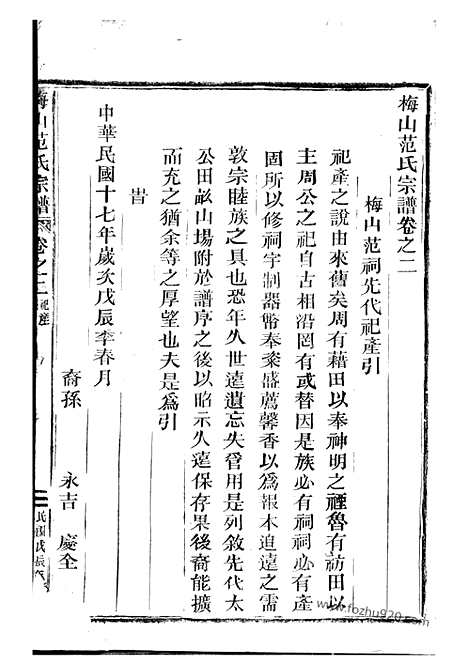 梅山范氏宗譜卷之二
梅山范祠先代祀產引
祀產之說由來舊矣周有藉田以奉神明之禋魯有祊田以
主周公之祀自古相沿罔有或替因是族必有祠祠必有產
固所以修祠宇制器幣奉粢盛薦馨香以爲報本追遠之需
敦宗睦族之具也恐年久世遠遺忘失管用是列敘先代太
公田畝山塲附於譜序之後以昭示久遠保存果後裔能擴
而充之猶余等之厚望也夫是爲引
旹
中華民國十七年歲次戊辰季春月
裔孫 永吉 慶全
梅山范氏宗譜 卷之二 祀產
民國戊辰
www.fozhu920.com